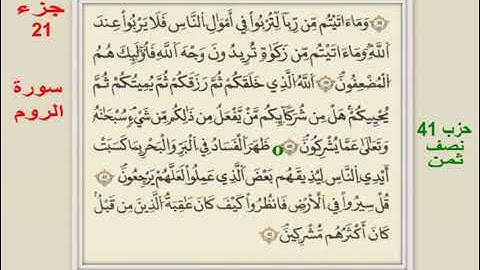 جزء
21
سورة
الروم
وَمَا ءَاتَيْتُم مِّن رِّبًا لِّتُرْبُوا۟ فِىٓ أَمْوَٰلِ النَّاسِ فَلَا يَرْبُوا۟ عِندَ
اللَّهِ وَمَا ءَاتَيْتُم مِّن زَكَوٰةٍ تُرِيدُونَ وَجْهَ اللَّهِ فَأُو۟لَٰٓئِكَ هُمُ
الْمُضْعِفُونَ اللَّهُ الَّذِى خَلَقَكُمْ ثُمَّ رَزَقَكُمْ ثُمَّ يُمِيتُكُمْ ثُمَّ
يُحْيِيكُمْ هَلْ مِن شُرَكَآئِكُم مَّن يَفْعَلُ مِن ذَٰلِكُم مِّن شَىْءٍ سُبْحَٰنَهُ
وَتَعَٰلَىٰ عَمَّا يُشْرِكُونَ ظَهَرَ الْفَسَادُ فِى الْبَرِّ وَالْبَحْرِ بِمَا كَسَبَتْ
أَيْدِى النَّاسِ لِيُذِيقَهُم بَعْضَ الَّذِى عَمِلُوا۟ لَعَلَّهُمْ يَرْجِعُونَ
قُلْ سِيرُوا۟ فِى الْأَرْضِ فَانظُرُوا۟ كَيْفَ كَانَ عَٰقِبَةُ الَّذِينَ مِن قَبْلُ
كَانَ أَكْثَرُهُم مُّشْرِكِينَ
حزب 41
نصف
ثمن